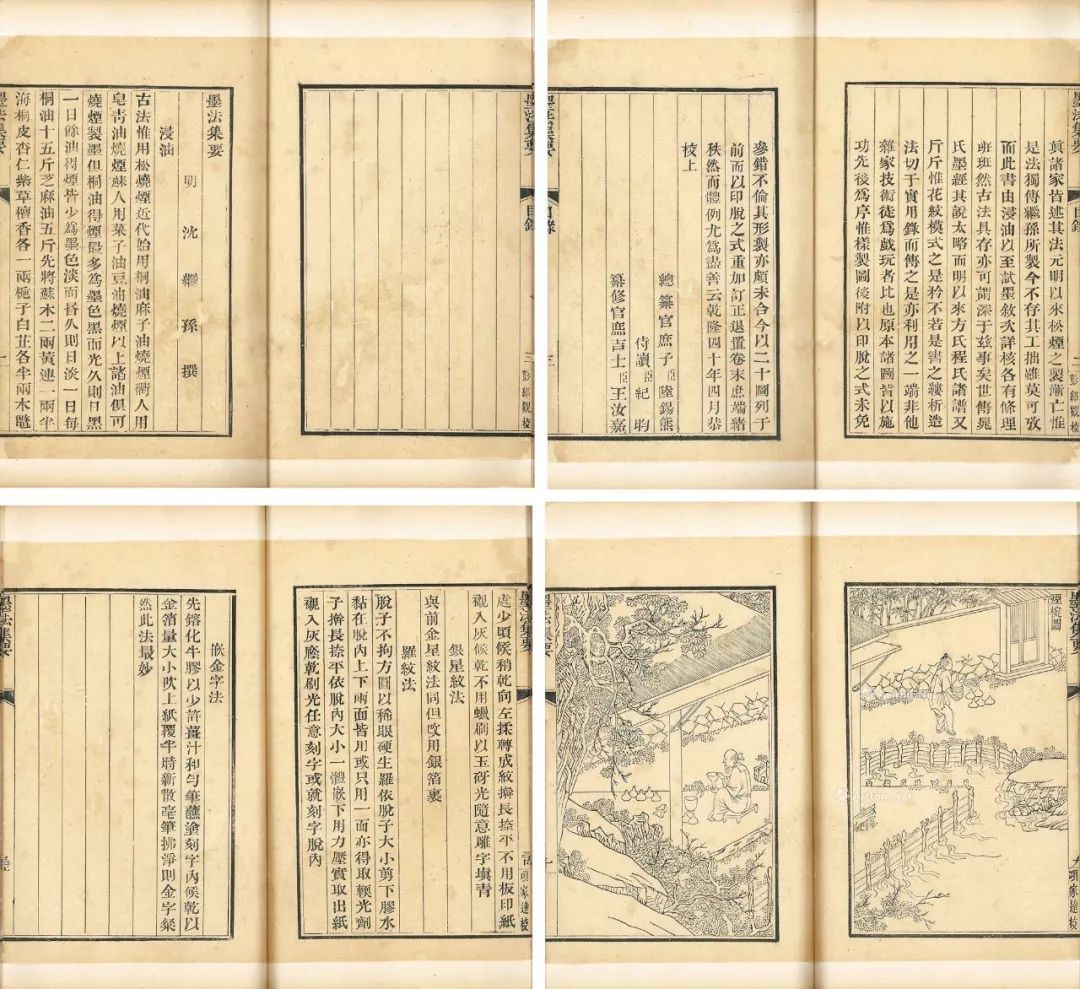 墨法集要
目錄
三
彭紹觀校
墨法集要
明 沈 繼 孫 撰
浸油
古法惟用松燒煙近代始用桐油麻子油燒煙衢人用
皂青油燒煙蘇人用菜子油豆油燒煙以上諸油俱可
燒煙製墨但桐油得煙最多爲墨色黑而光久則日黑
一日餘油得煙皆少爲墨色淡而昏久則日淡一日每
桐油十五斤芝麻油五斤先將蘇木二兩黃連一兩半
海桐皮杏仁紫草檀香各一兩梔子白芷各半兩木鼈
墨法集要
一
墨法集要
目錄
二
彭紹觀校
眞諸家皆述其法元明以來松煙之製漸亡惟
是法獨傳繼孫所製今不存其工拙雖莫可攷
而此書由浸油以至試墨敘次詳核各有條理
班班然古法具存亦可謂深于兹事矣世傳晁
氏墨經其說太略而明以來方氏程氏諸譜又
斤斤惟花紋模式之是矜不若是書之縷析造
法切于實用錄而傳之是亦利用之一端非他
雜家技術徒爲戲玩者比也原本諸圖皆以施
功先後爲序惟樣製圖後附以印脫之式未免
參錯不倫其形製亦頗未合今以二十圖列于
前而以印脫之式重加訂正退置卷末庶端緒
秩然而體例尤爲盡善云乾隆四十年四月恭
校上
總纂官庶子臣陸錫熊
侍讀臣紀昀
纂修官庶吉士臣王汝嘉
墨法集要
目錄
墨法集要
項家達校
處少頃候稍乾向左揉轉成紋擀長捺平不用板印紙
襯入灰候乾不用蠟刷以玉砑光隨意雕字填青
銀星紋法
與前金星紋法同但改用銀箔裹
羅紋法
脫子不拘方圓以稀眼硬生羅依脫子大小剪下膠水
黏在脫內上下兩面皆用或只用一面亦得取輭光劑
子擀長捺平依脫內大小一體嵌下用力壓實取出紙
襯入灰廕乾刷光任意刻字或就刻字脫內
嵌金字法
先鎔化牛膠以少許薑汁和勻筆蘸塗刻字內候乾以
金箔量大小吹上紙覆半時新散毫筆拂淨則金字粲
然此法最妙
墨法集要
墨法集要
九
項家達校
煙椀圖
墨法集要